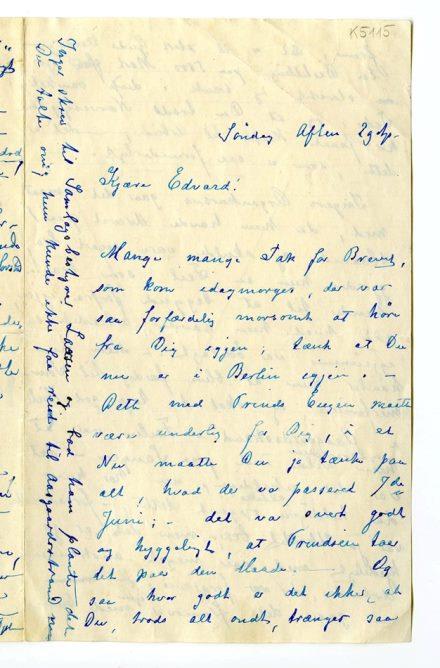 K5115
Søndag Aften 29 Sp.
Kjære Edvard!
Mange mange Tak for Brevet,
som kom idagmorges, der var
saa forfærdelig morsomt at høre
fra Dig igjen, tænk at Du
nu er i Berlin igjen. —
Dette med Prinds Eugen maatte
være underlig for Dig, i et
Nu maatte Du jo tænke paa
alt, hvad der var passered 7de
Juni; — det var svært godt
og hyggeligt, at Prindsen tar
det paa den Maade — Og
saa hvor godt er det ikke, at
Du, trods alt ondt, trænger saa
Inger skrev til Samlagsbestyrer Larssen og bad ham plante det
Du talte om, hun kunde ikke faa reise til Aasgaardstrand